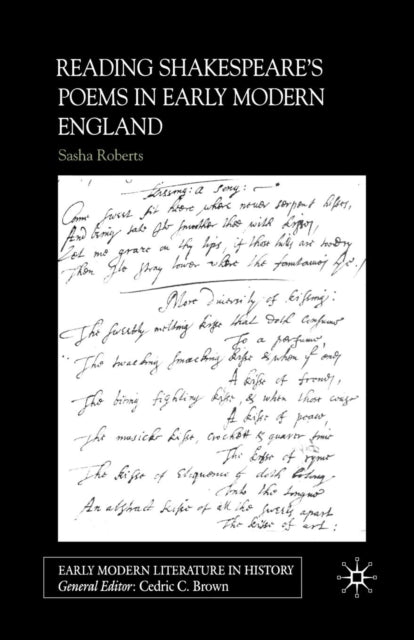 READING SHAKESPEARE'S
POEMS IN EARLY MODERN
ENGLAND
Sasha Roberts
Kissing: A Song:
Come sweet sit heere where never serpent hisses,
And being sate Ile smoother thee with kisses,
Let me graze on thy lips, if those hills are
Then Ile stray lower where the fountaines lye.
More Diversity of kissing:
The sweetly melting kisse that doth consume
To a perfume,
The smacking kisse & when it ends
A kisse of frends,
The fighting kisse, & when those cease
A kisse of peace,
The musicke kisse, crochet & quaver time
The kisse of ryme
The kisse of Eloquence doth belong
Unto the tongue
An abstract kisse of all the sweets apart
The kisse of art:
EARLY MODERN LITERATURE IN HISTORY
General Editor: Cedric C. Brown